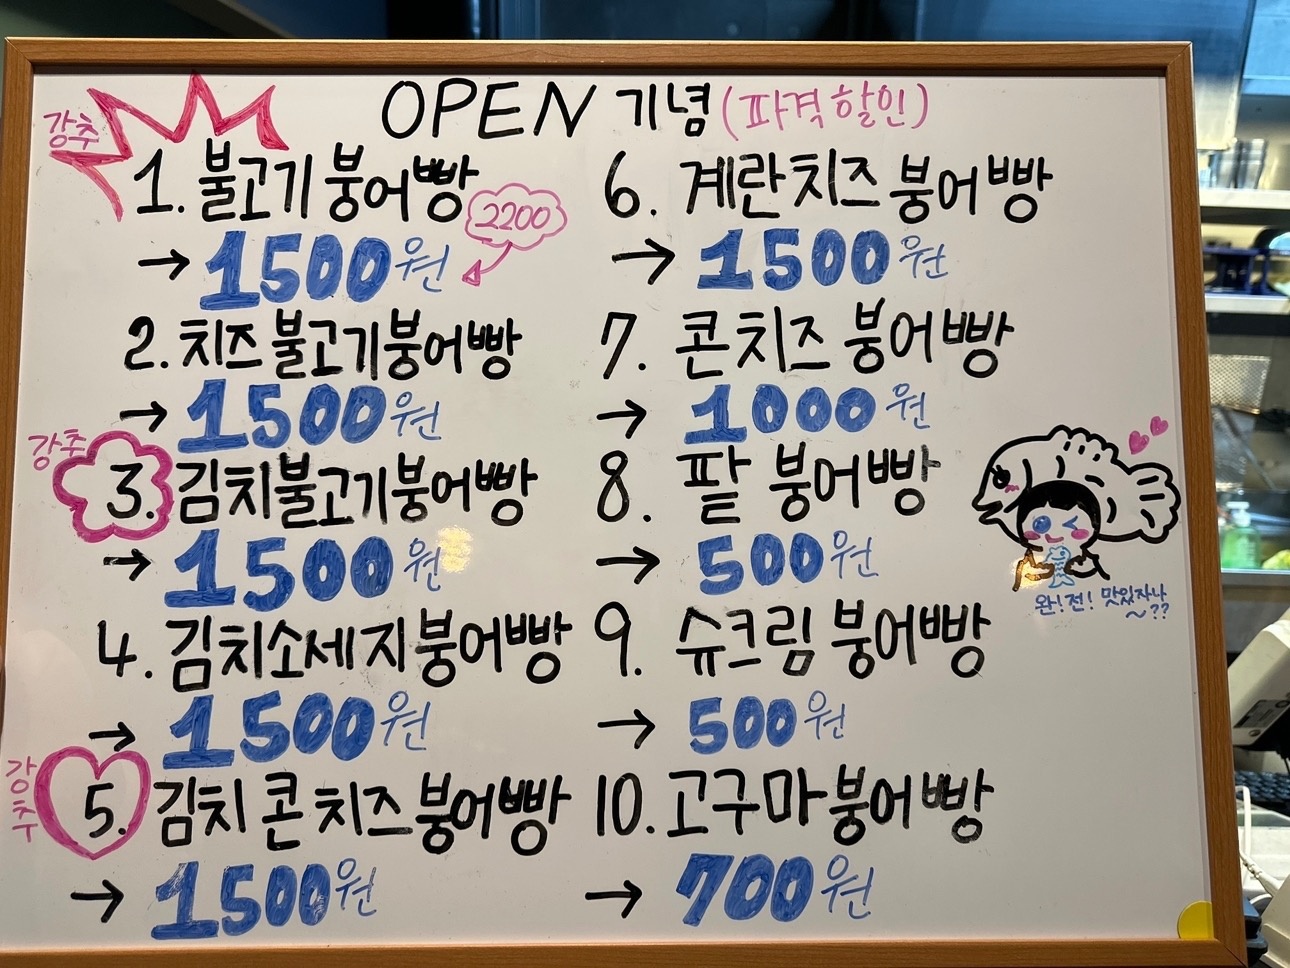 OPEN 기념 (파격할인)
강추
1. 불고기 붕어빵
2200
→ 1500원
2. 치즈불고기붕어빵
→ 1500원
강추
3. 김치불고기붕어빵
→ 1500원
4. 김치소세지붕어빵
→ 1500원
강추
5. 김치콘치즈붕어빵
→ 1500원
6. 계란치즈붕어빵
→ 1500원
7. 콘치즈 붕어빵
→ 1000원
8. 팥 붕어빵
→ 500원
9. 슈크림 붕어빵
→ 500원
10. 고구마붕어빵
→ 700원
완!전! 맛있자나
~??